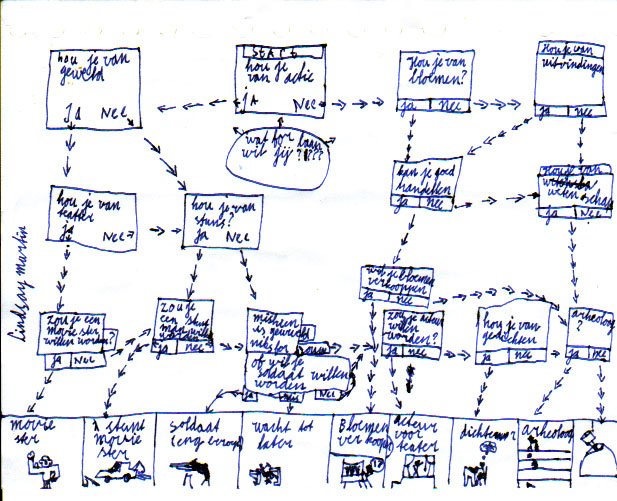 hou je van
geweld
ja Nee
START
hou je
van actie
ja Nee
Hou je van
bloemen?
ja Nee
Hou je van
uitvindingen
ja Nee
wat for baan
wil jij????
kan je goed
handelen
ja Nee
Houde van
weten schap
ja Nee
hou je van
teater
ja
Nee
hou je van
stuns?
ja Nee
Lindsay Martin
wil je bloemen
verkooppen
ja nee
zou je een
movie ster
willen worden?
ja Nee
zou je
een stunt
ja nee
misheen
is geweld
of wil je
soldaat willen
worden
ja Nee
zou je acteur
willen
worden?
ja Nee
hou je van
gedichten
ja Nee
arheoloog
?
ja nee
movie
ster
stunt
movie
ster
soldaat
wacht tot
later
Bloemen
ver kooper
acteur
voor
teater
dichter
arheoloog